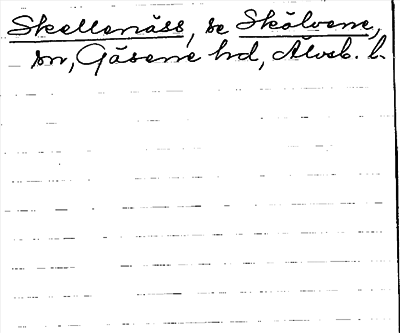 Skellenäss, se Skölvene,
sn, Gäsene hd, Älvsb. l.